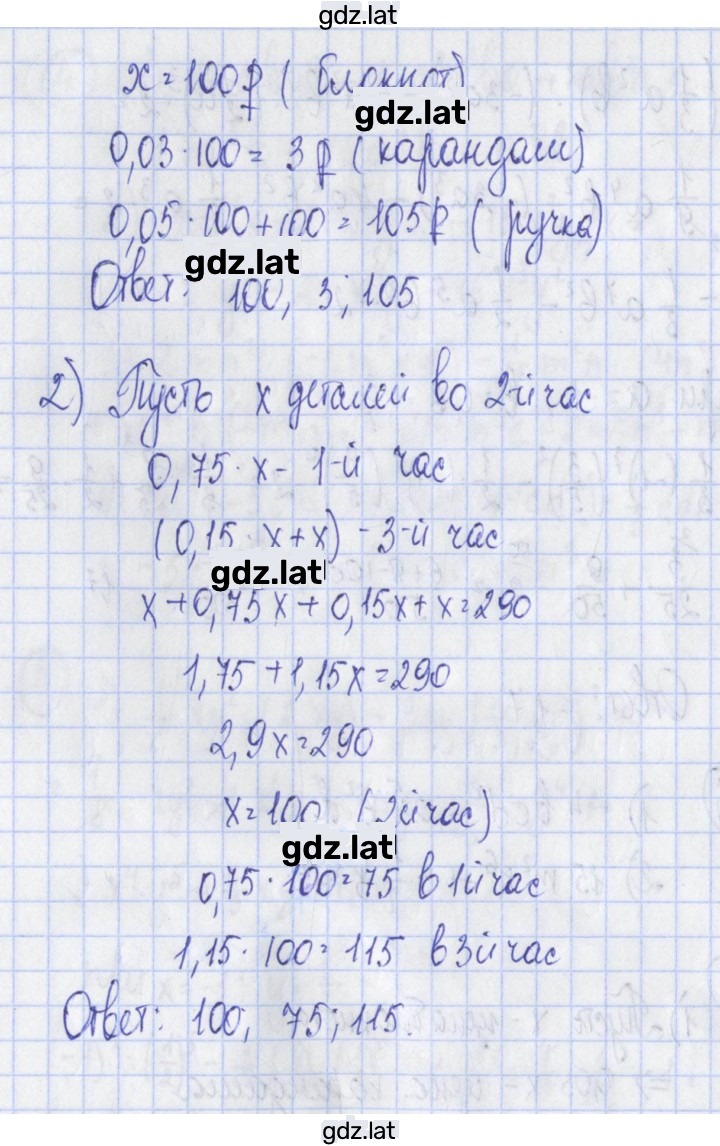 gdz.lat
x = 100 ₽ ( блокнот)
gdz.lat
0,03 · 100 = 3 ₽ ( карандаш)
0,05 · 100 + 100 = 105 ₽ ( ручка)
gdz.lat
Ответ: 100, 3; 105
2) Пусть x деталей во 2-й час
0,75 · x - 1-й час
( 0,15 · x + x) - 3-й час
gdz.lat
x + 0,75x + 0,15x + x = 290
1,75 + 1,15x = 290
2,9x = 290
x = 100 (2й час)
gdz.lat
0,75 · 100 = 75 в 1й час
1,15 · 100 = 115 в 3й час
Ответ: 100, 75; 115.
gdz.lat